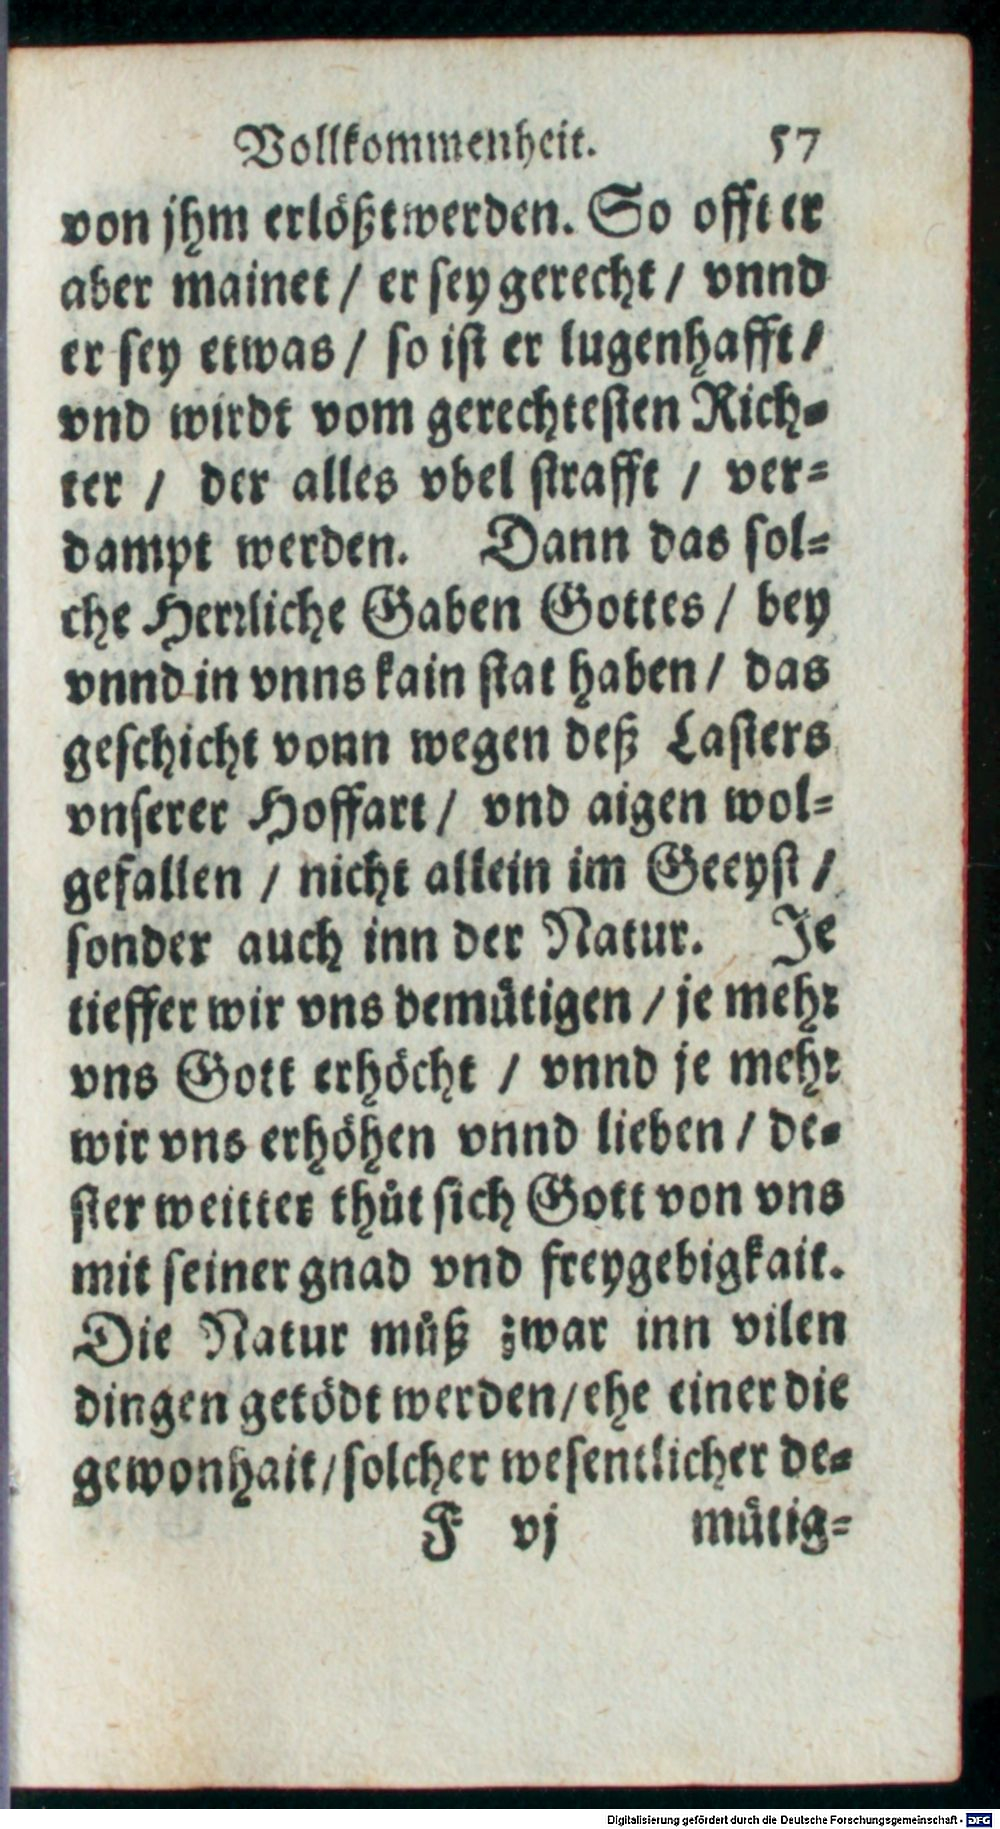 Vollkommenheit. 57
von jhm erlößt werden. So offt er
aber mainet / er sey gerecht / vnnd
er sey etwas / so ist er lugenhafft /
vnd wirdt vom gerechtesten Rich-
ter / der alles vbel strafft / ver-
dampt werden. Dann das sol-
che Herrliche Gaben Gottes / bey
vnnd in vnns kain stat haben / das
geschicht vonn wegen deß Lasters
vnserer Hoffart / vnd aigen wol-
gefallen / nicht allein im Geeyst /
sonder auch inn der Natur. Je
tieffer wir vns demütigen / je mehr
vns Gott erhöcht / vnnd je mehr
wir vns erhöhen vnnd lieben / de-
ster weitter thůt sich Gott von vns
mit seiner gnad vnd freygebigkait.
Die Natur můß zwar inn vilen
dingen getödt werden / ehe einer die
gewonhait / solcher wesentlicher de-
F vj mütig-
Digitalisierung gefördert durch die Deutsche Forschungsgemeinschaft - DFG